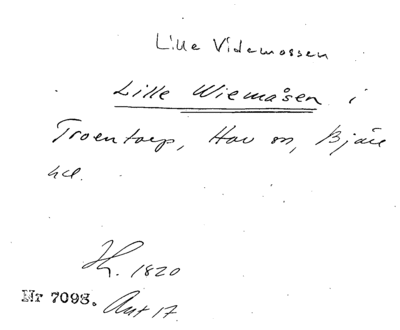 Lille Videmossen
Lille Wiemåsen i
Troentorp, Hov sn, Bjäre
hd.
1820
Nr 7098. Akt 17.